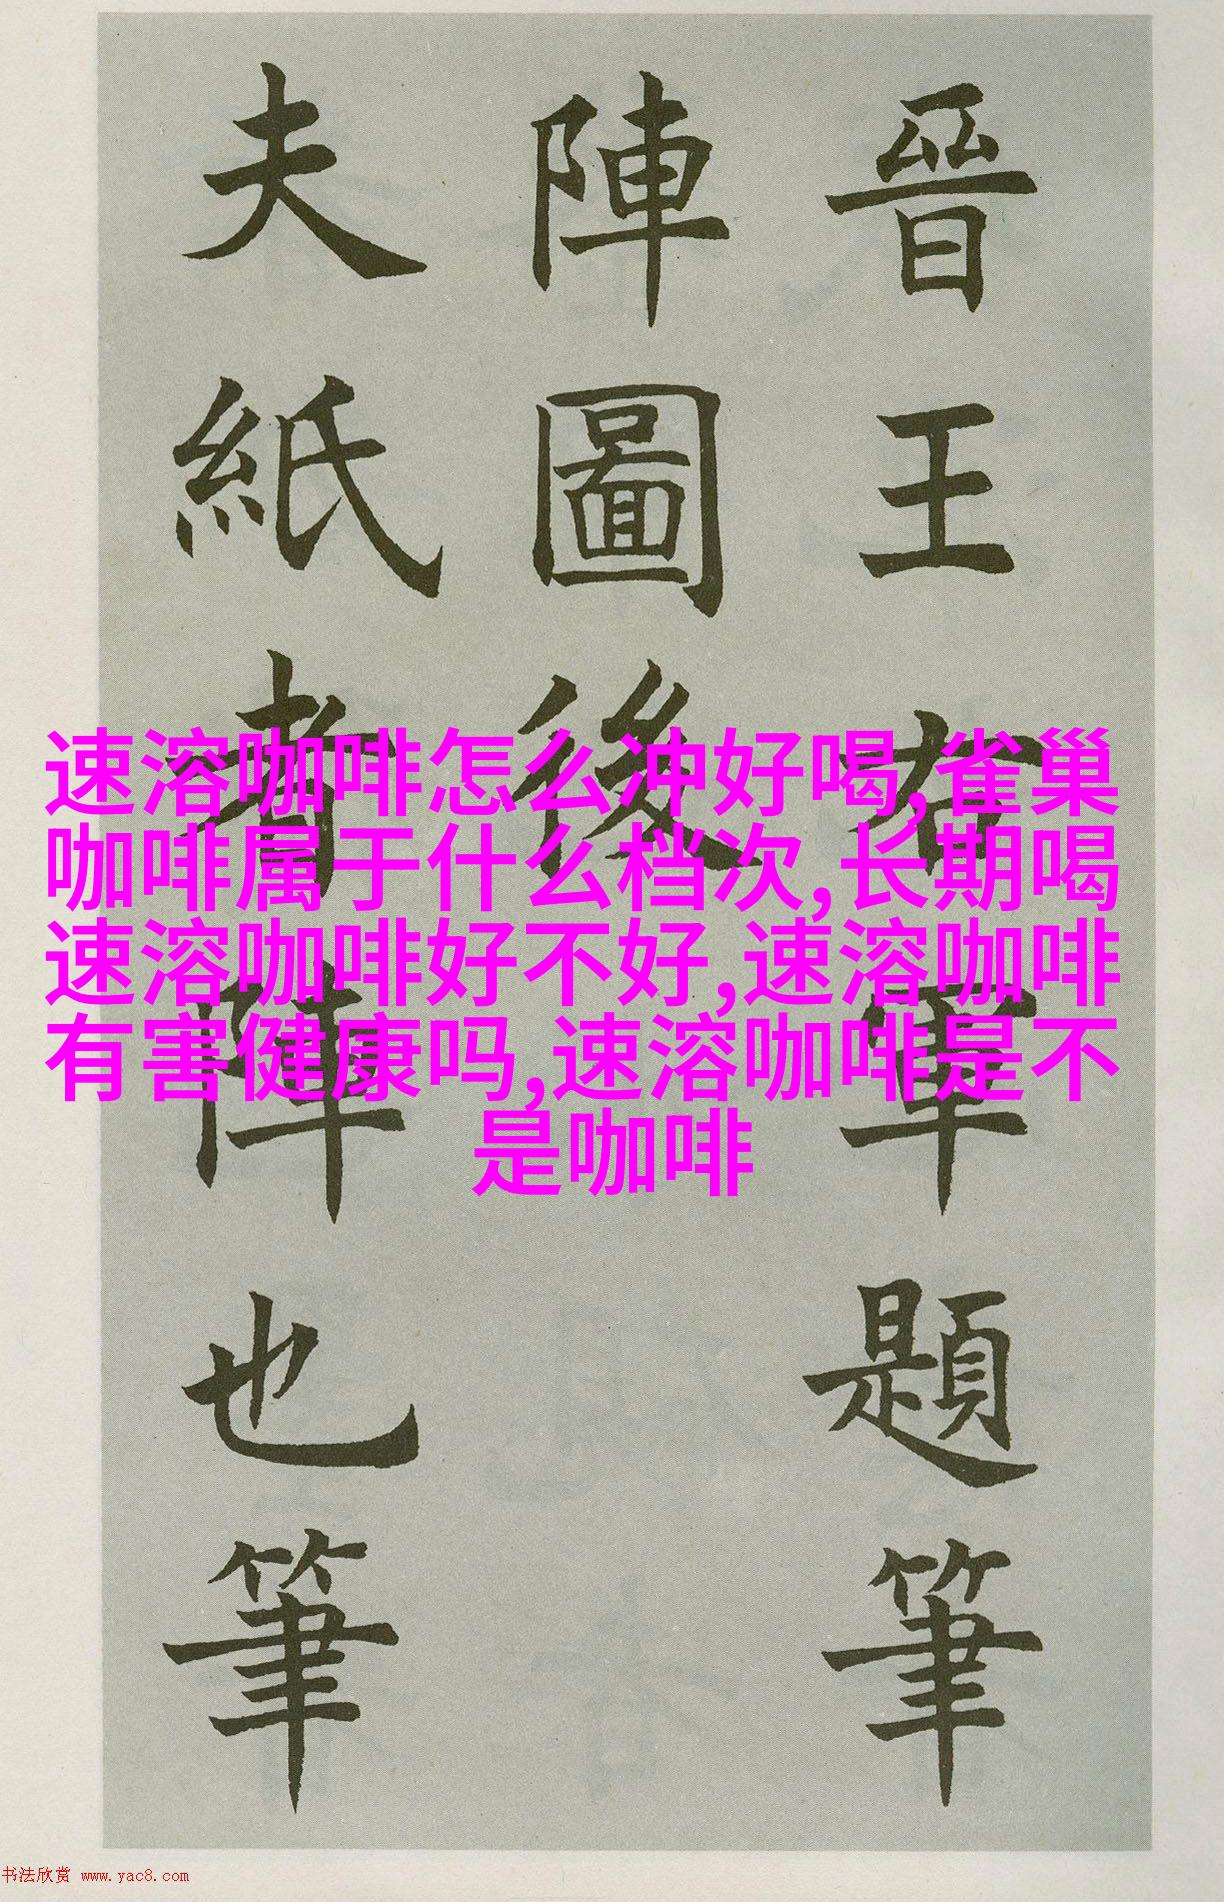 晉王右軍題筆
陣圖後
夫紙者陣也筆
速溶咖啡怎么冲好喝,雀巢
咖啡属于什么档次,长期喝
速溶咖啡好不好,速溶咖啡
有害健康吗,速溶咖啡是不
是咖啡
书法欣赏 www.yac8.com